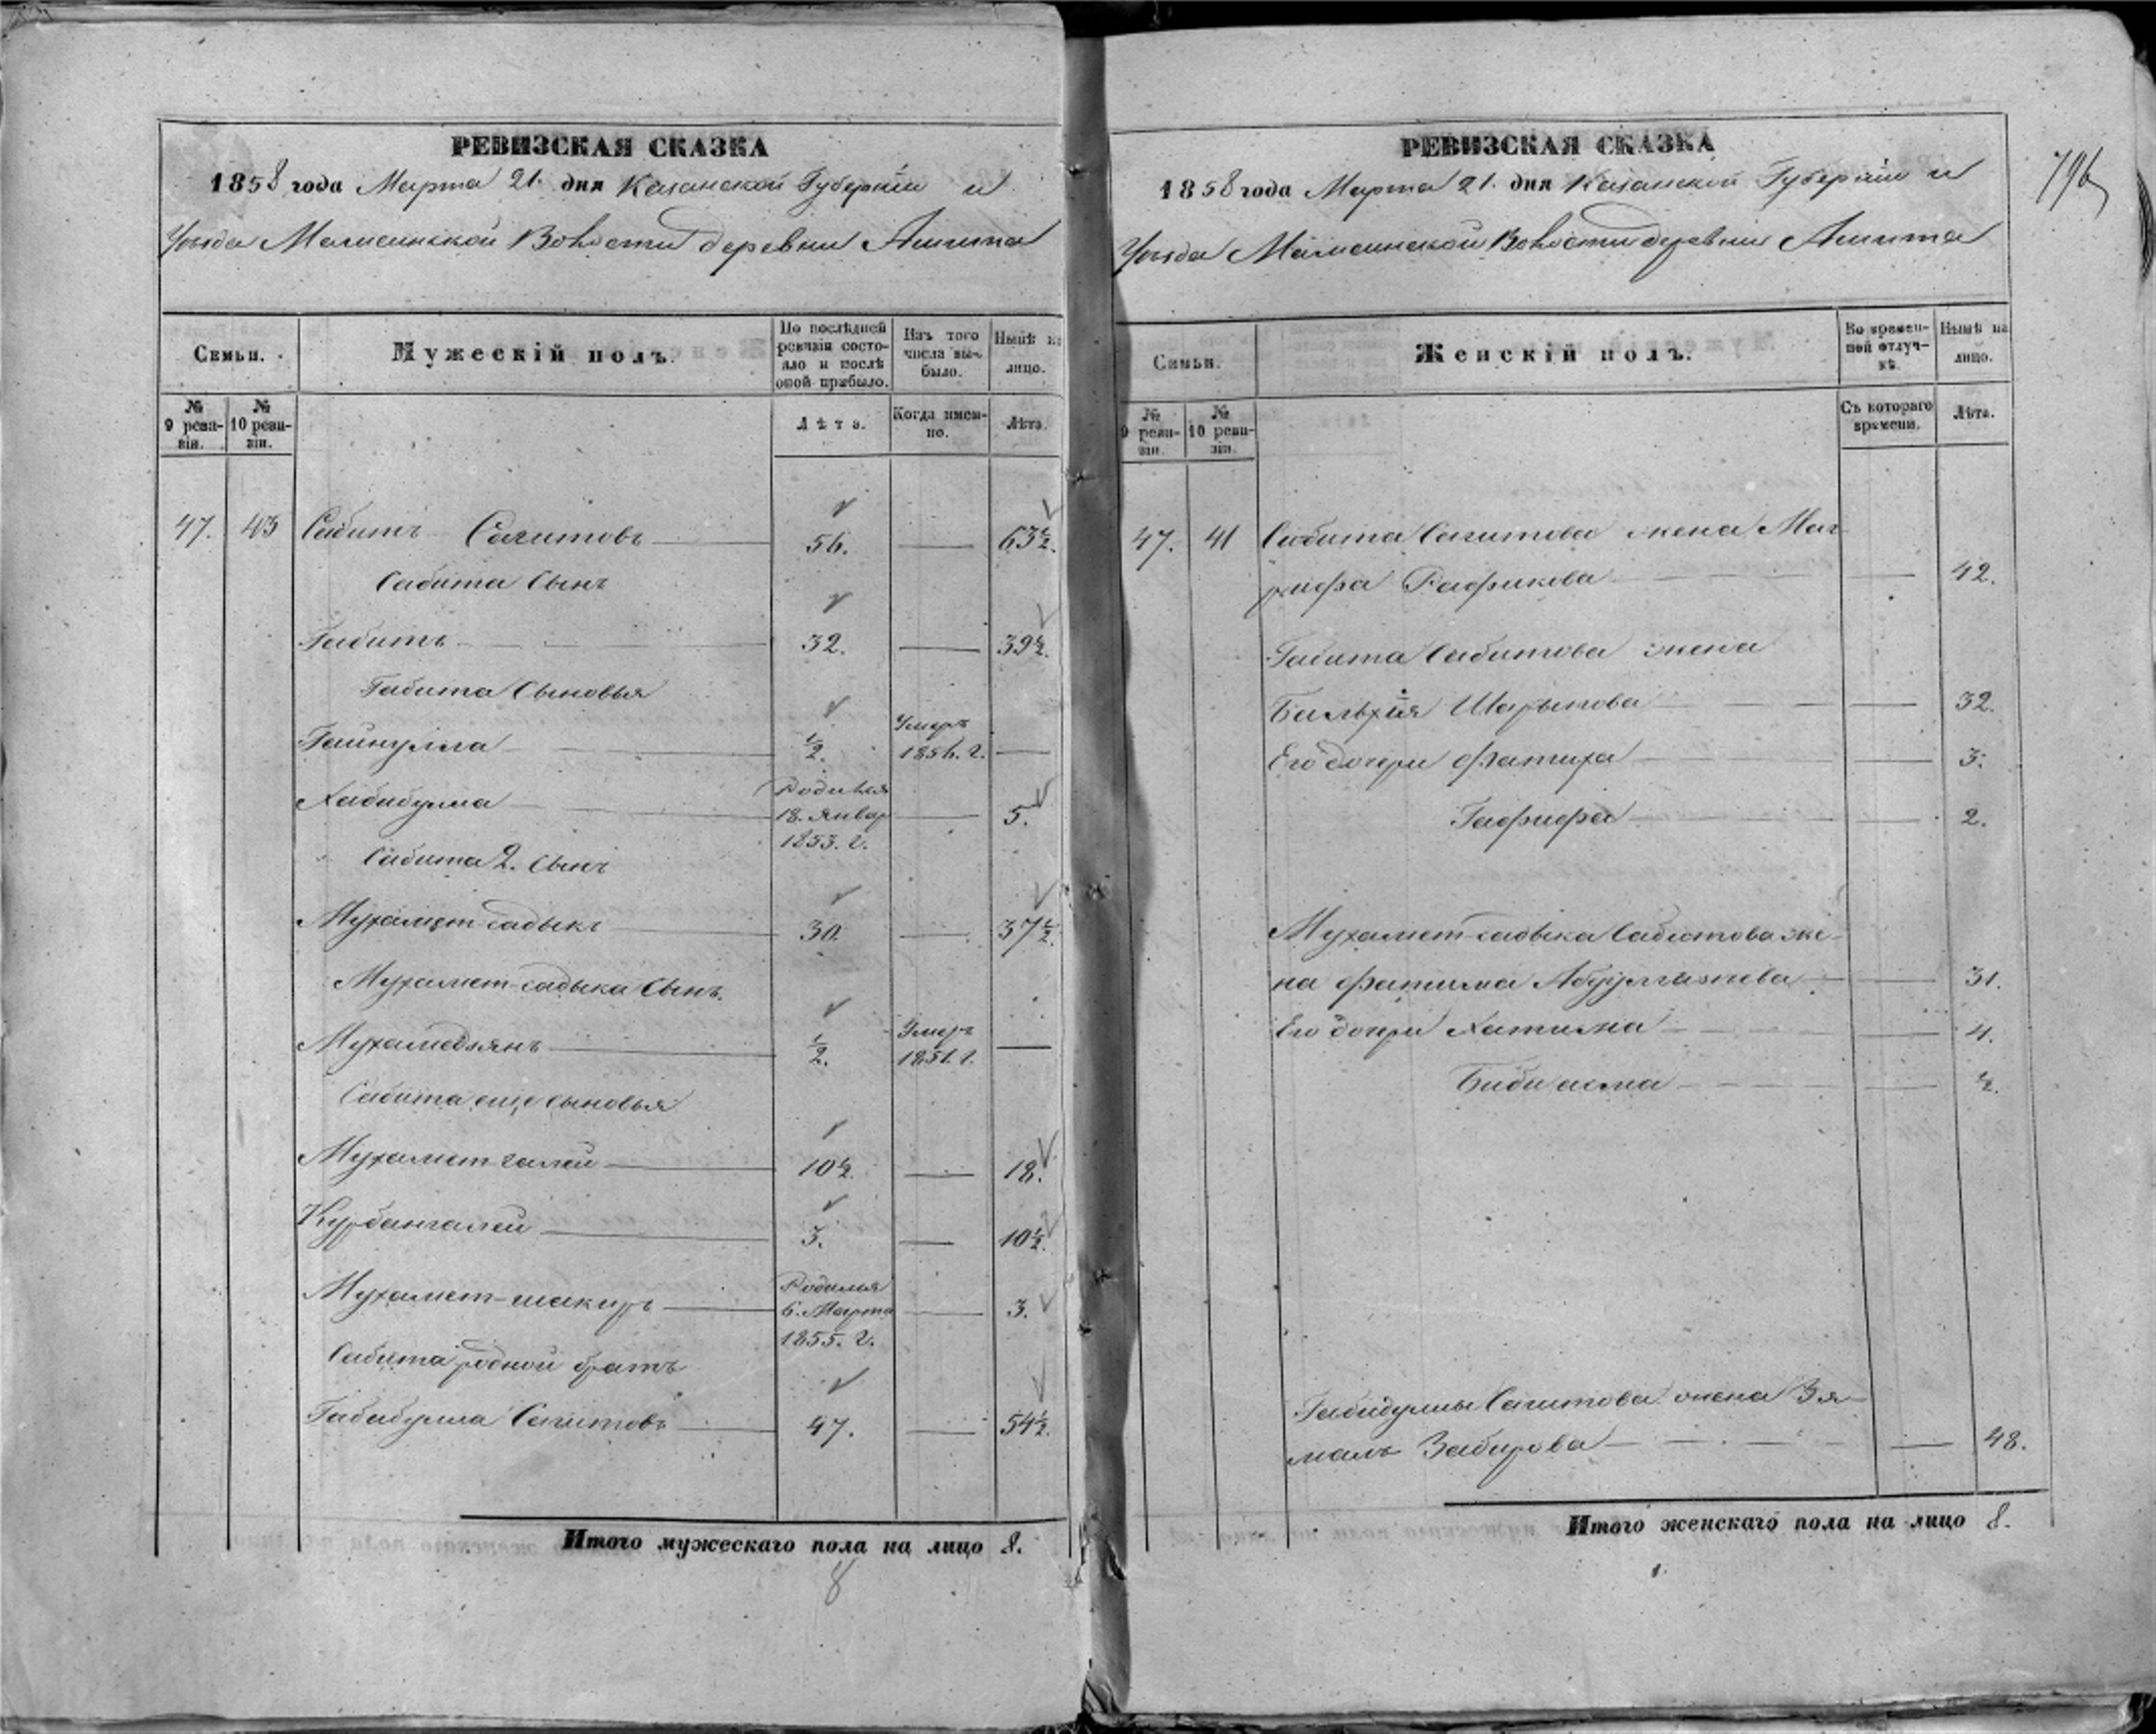 РЕВИЗСКАЯ СКАЗКА
1858 года Марта 21. дня Казанской Губерніи и
Уезда Мамсинской Волости деревни Ашита
Семьи.
Мужескій полъ.
По послѣдней ревизіи состояло и послѣ оной прибыло.
Изъ того числа выбыло.
Нынѣ на лицо.
№ 9 ревизіи.
№ 10 ревизіи.
Лѣта.
Когда именно.
Лѣта.
47. 43 Сабитъ Сагитовъ 56. — 63½.
Сабита Сынъ
Габитъ 32. — 39½.
Габита Сыновья
Гайнулла ½. Умеръ 1856. г. —
Хабибулла Родился 18. Январ 1853. г. — 5.
Сабита 2. Сынъ
Мухамет-садыкъ 30. — 37½.
Мухамет-садыка Сынъ.
Мухамедзянъ ½. Умеръ 1851. г. —
Сабита еще сыновья
Мухамет-галей 10½. — 18.
Курбангалей 3. — 10½.
Мухамет-шакиръ Родился 6. Марта 1855. г. — 3.
Сабита родной братъ
Габидулла Сагитовъ 47. — 54½.
Итого мужескаго пола на лицо 8.
8
796
РЕВИЗСКАЯ СКАЗКА
1858 года Марта 21. дня Казанской Губерніи и
Уезда Мамсинской Волости деревни Ашита
Семьи.
Женскій полъ.
Во временной отлучкѣ.
Нынѣ на лицо.
№ 9 ревизіи.
№ 10 ревизіи.
Съ котораго времени.
Лѣта.
47. 41 Сабита Сагитова жена Маг
рифа Рафикова — 42.
Габита Сабитова жена
Бальхія Шарыпова — 32.
Его дочери Фатиха — 3.
Гафифа — 2.
Мухамет-садыка Сабитова же-
на Фатима Абдулгазиева — 31.
Его дочери Хатима — 4.
Биби асма — ½.
Габидуллы Сагитова жена Зя-
маль Забирова — 48.
Итого женскаго пола на лицо 8.